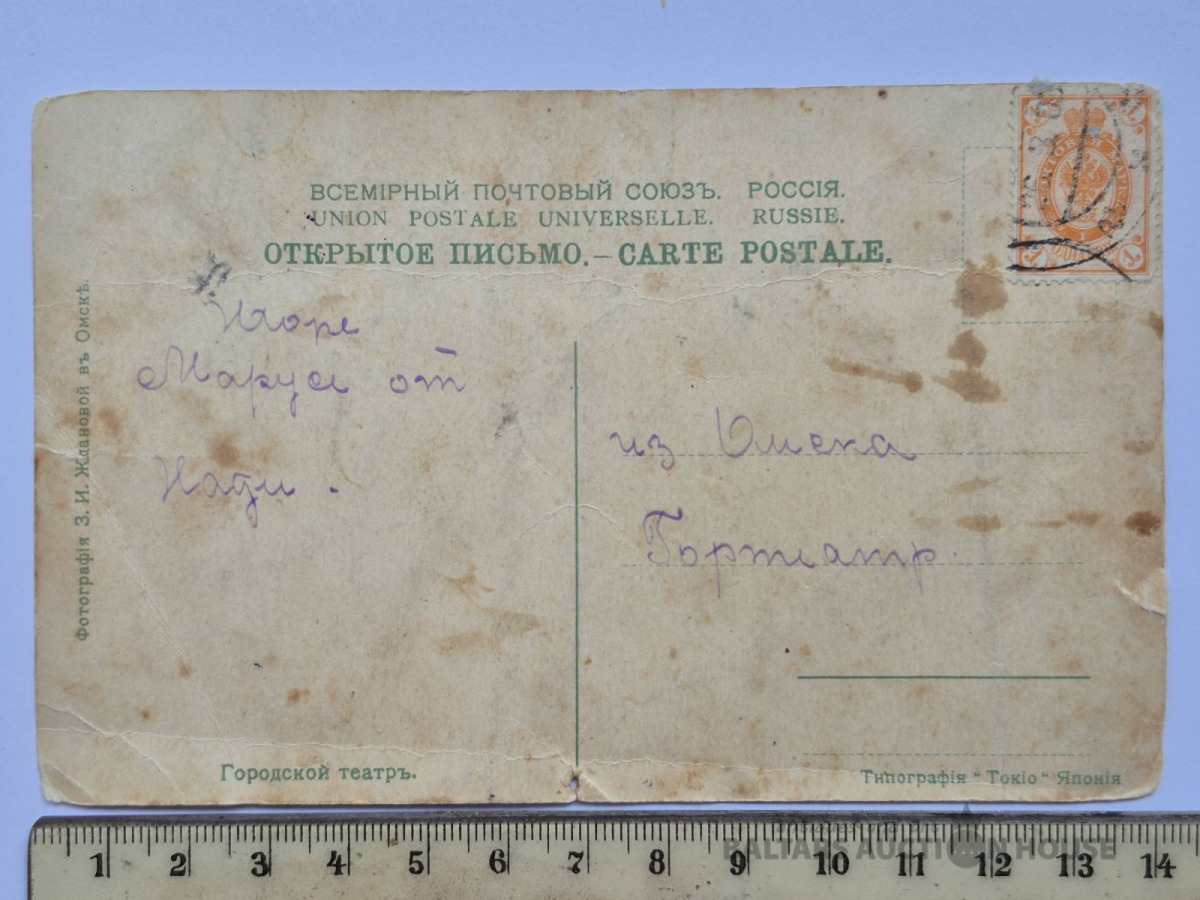 ВСЕМІРНЫЙ ПОЧТОВЫЙ СОЮЗЪ. РОССІЯ.
UNION POSTALE UNIVERSELLE. RUSSIE.
ОТКРЫТОЕ ПИСЬМО.–CARTE POSTALE.
Фотографія З. И. Ждановой въ Омскѣ.
Маруси от
Нади.
из Омска
Гортеатр.
Городской театръ.
Типографія "Токіо" Японія
1 2 3 4 5 6 7 8 9 10 11 12 13 14
BALTARS AUCTION HOUSE